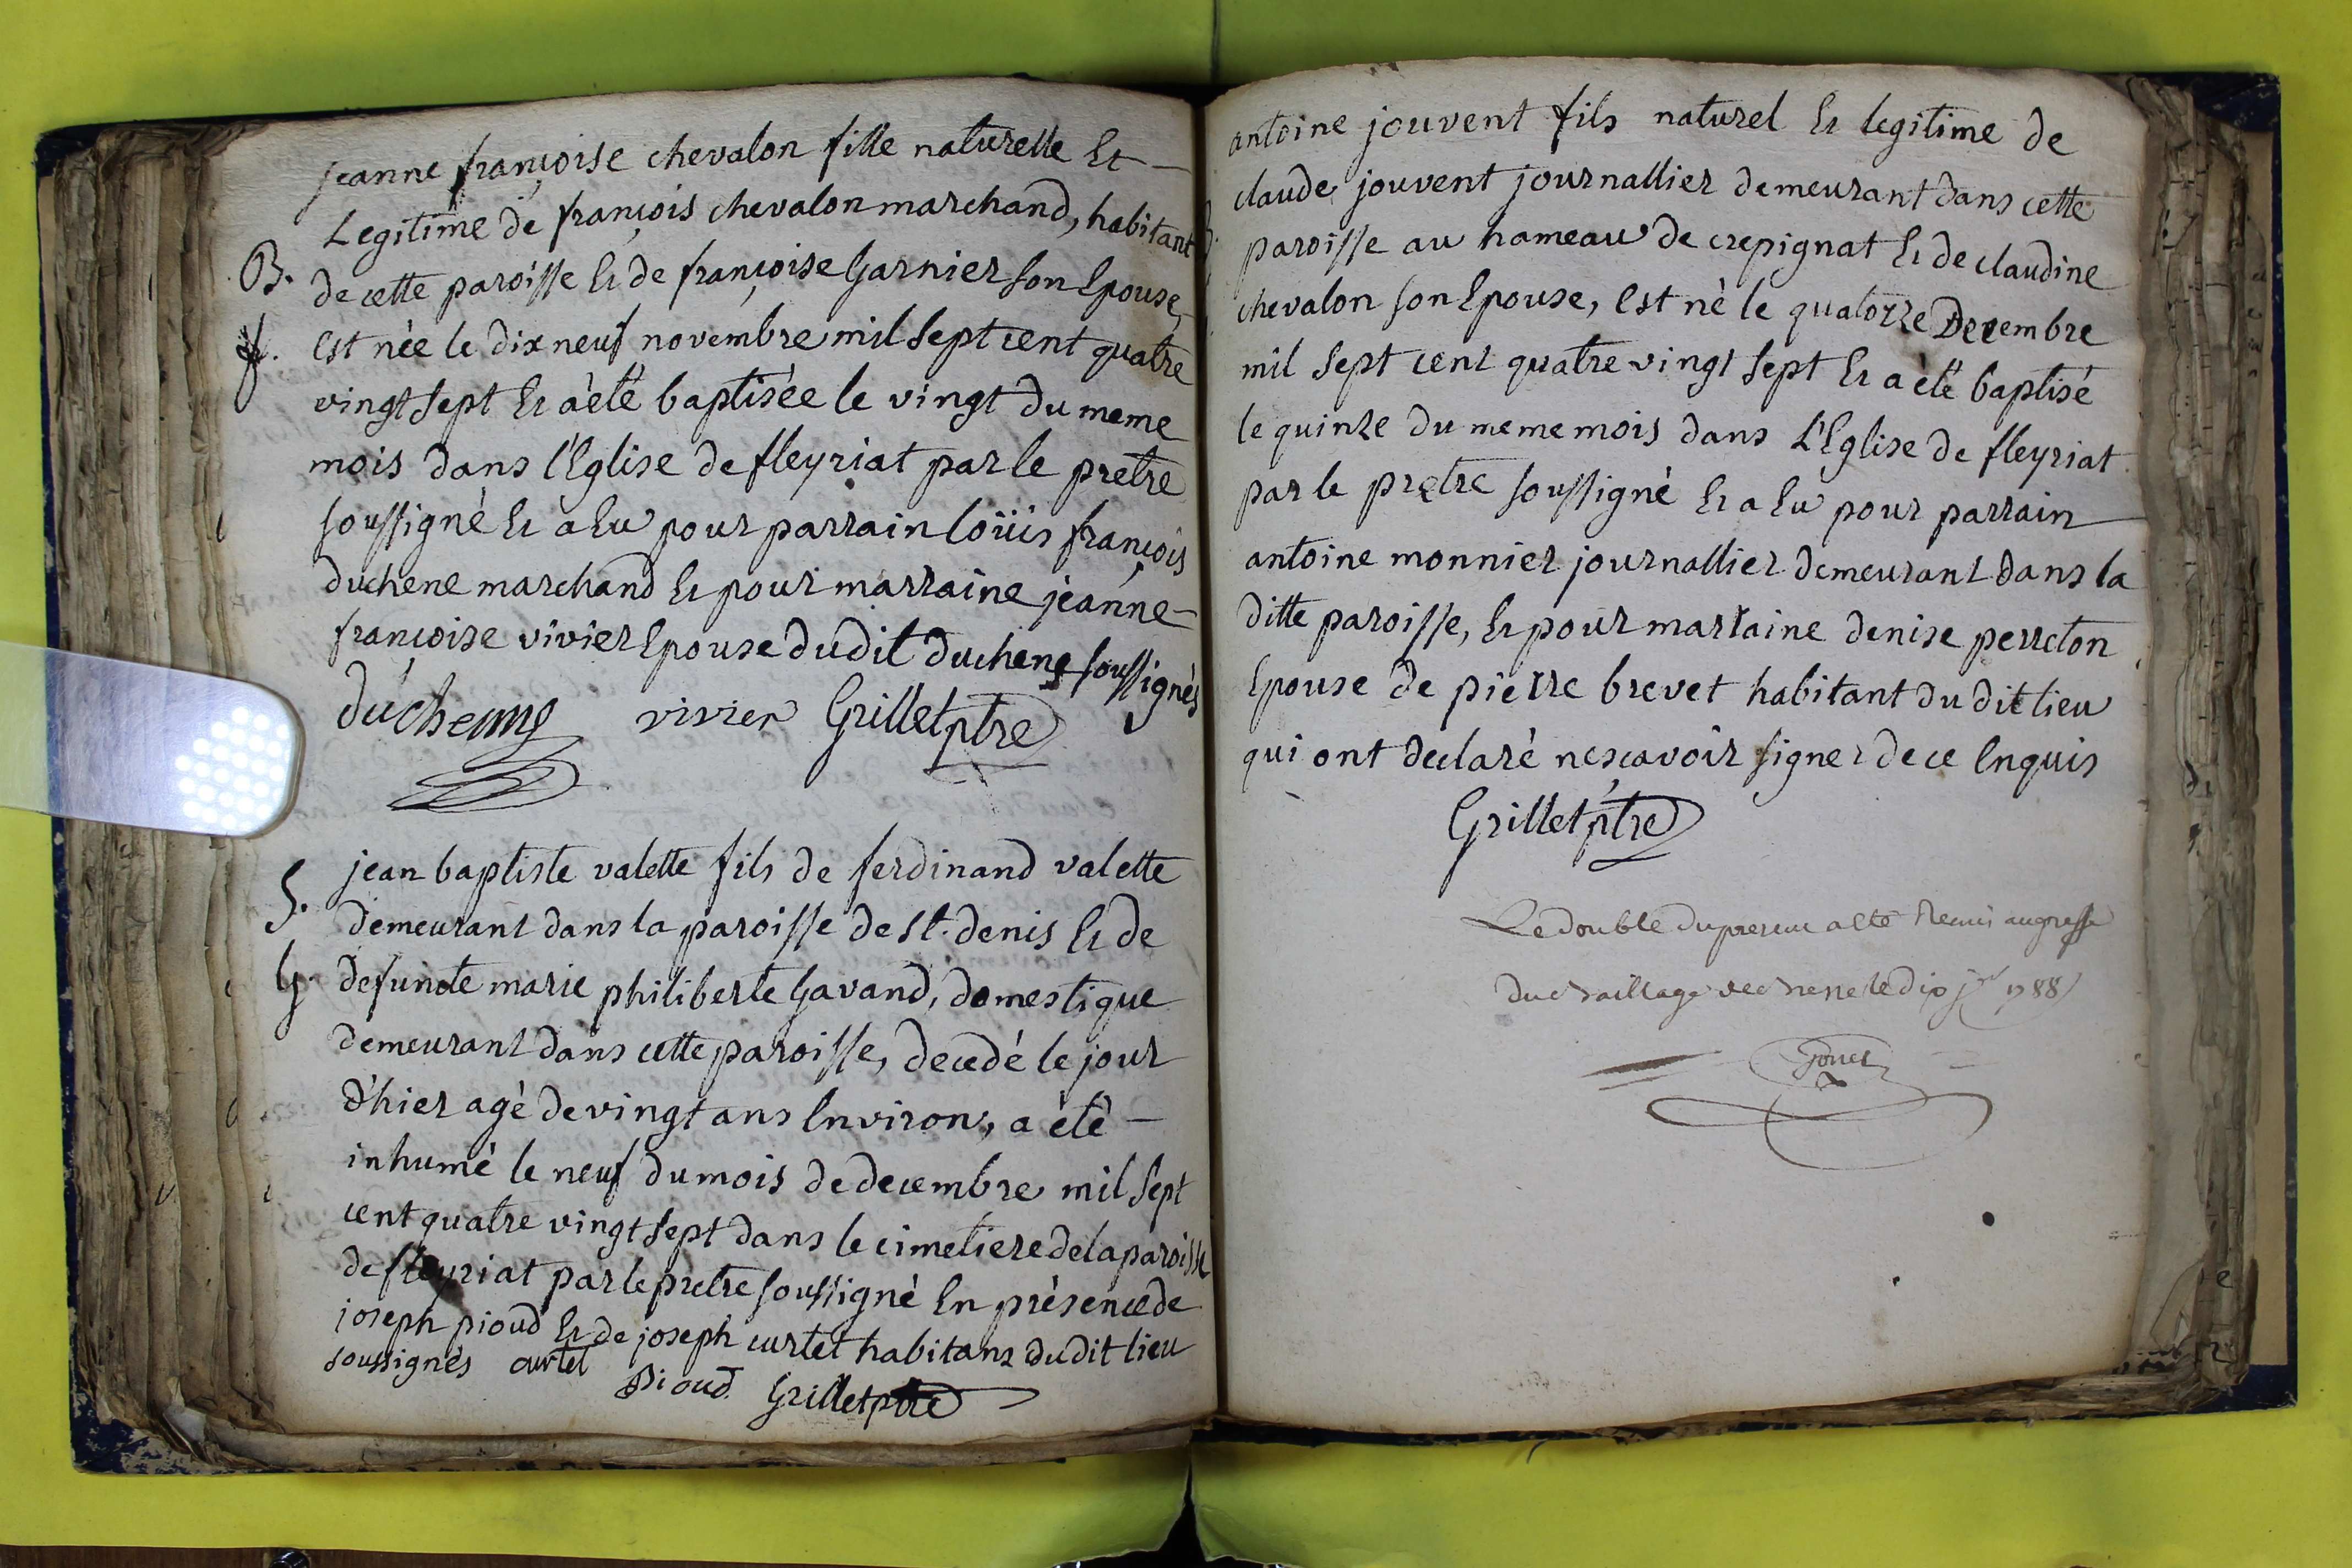 jeanne françoise chevalon fille naturelle Et
Legitime de françois chevalon marchand, habitant
B. de cette paroisse Et de françoise Garnier son Epouse,
f. Est nèe le dix neuf novembre mil sept cent quatre
vingt sept Et a èté baptisèe le vingt du meme
mois dans l'Eglise de fleyriat par le pretre
soussigné Et a Eu pour parrain loüis françois
duchene marchand Et pour marraine jeanne
françoise vivier Epouse dudit duchene soussignès
duchenne vivier Grillet ptre
jean baptiste valette fils de ferdinand valette
S. demeurant dans la paroisse de st. denis Et de
G. defuncte marie philiberte Gavand, domestique
demeurant dans cette paroisse, decedé le jour
d'hier agè de vingt ans Environ, a èté
inhumè le neuf du mois de decembre mil sept
cent quatre vingt sept dans le cimetiere de la paroisse
de fleyriat par le pretre soussigné En prèsence de
joseph pioud Et de joseph curtet habitans dudit lieu
soussignès curtet Pioud Grillet ptre
antoine jouvent fils naturel Et legitime de
claude jouvent journallier demeurant dans cette
paroisse au hameau de crepignat Et de claudine
chevalon son Epouse, Est nè le quatorze Decembre
mil sept cent quatre vingt sept Et a èté baptisé
le quinze du meme mois dans L'Eglise de fleyriat
par le pretre soussigné Et a Eu pour parrain
antoine monnier journallier demeurant dans la
ditte paroisse, Et pour marraine denise perreton
Epouse de pierre brevet habitant du dit lieu
qui ont declaré nesçavoir signer de ce Enquis
Grillet ptre
Le double du a eté Remis au greffe
du le dix 1788